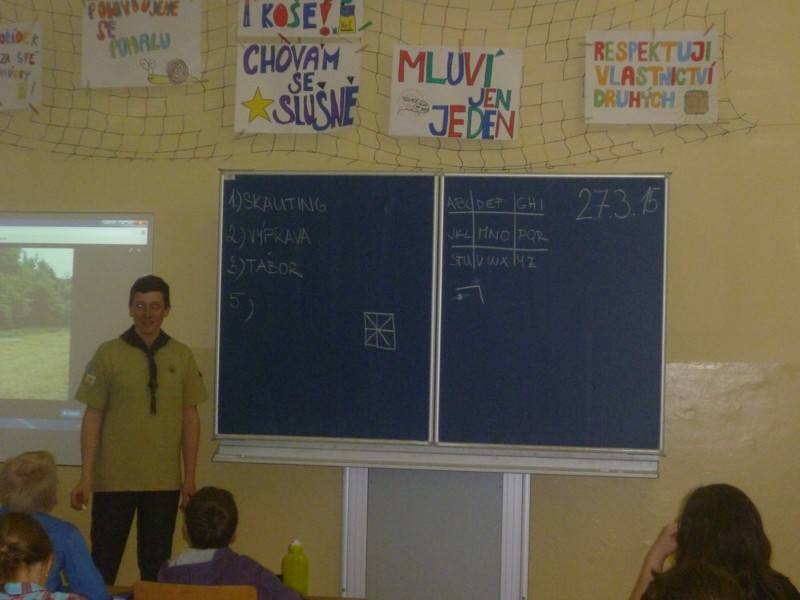 POHYBUJEME
SE
POMALU
I KOŠE!
CHOVÁM
SE
SLUŠNĚ
MLUVÍ
JEN
JEDEN
RESPEKTUJI
VLASTNICTVÍ
DRUHÝCH
1) SKAUTING
2) VÝPRAVA
3) TÁBOR
5)
ABC DEF GHI
JKL MNO PQR
STU VWX YZ
27.3.15